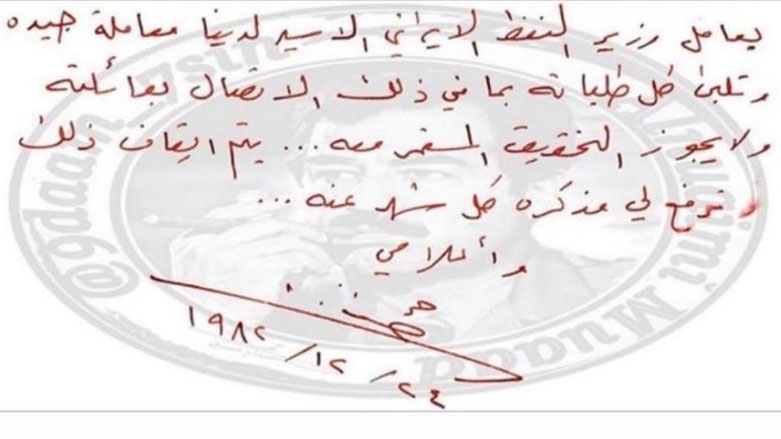 يعامل وزير النفط الايراني الاسير لدينا معاملة جيده
وتلبى كل طلباته بما في ذلك الاتصال بعائلته
ولايجوز التحقيق المستمر معه... يتم ايقاف ذلك
ترفع لي مذكره كل شهر عنه...
وأعلامي
١٩٨٢/١٢/٢٤